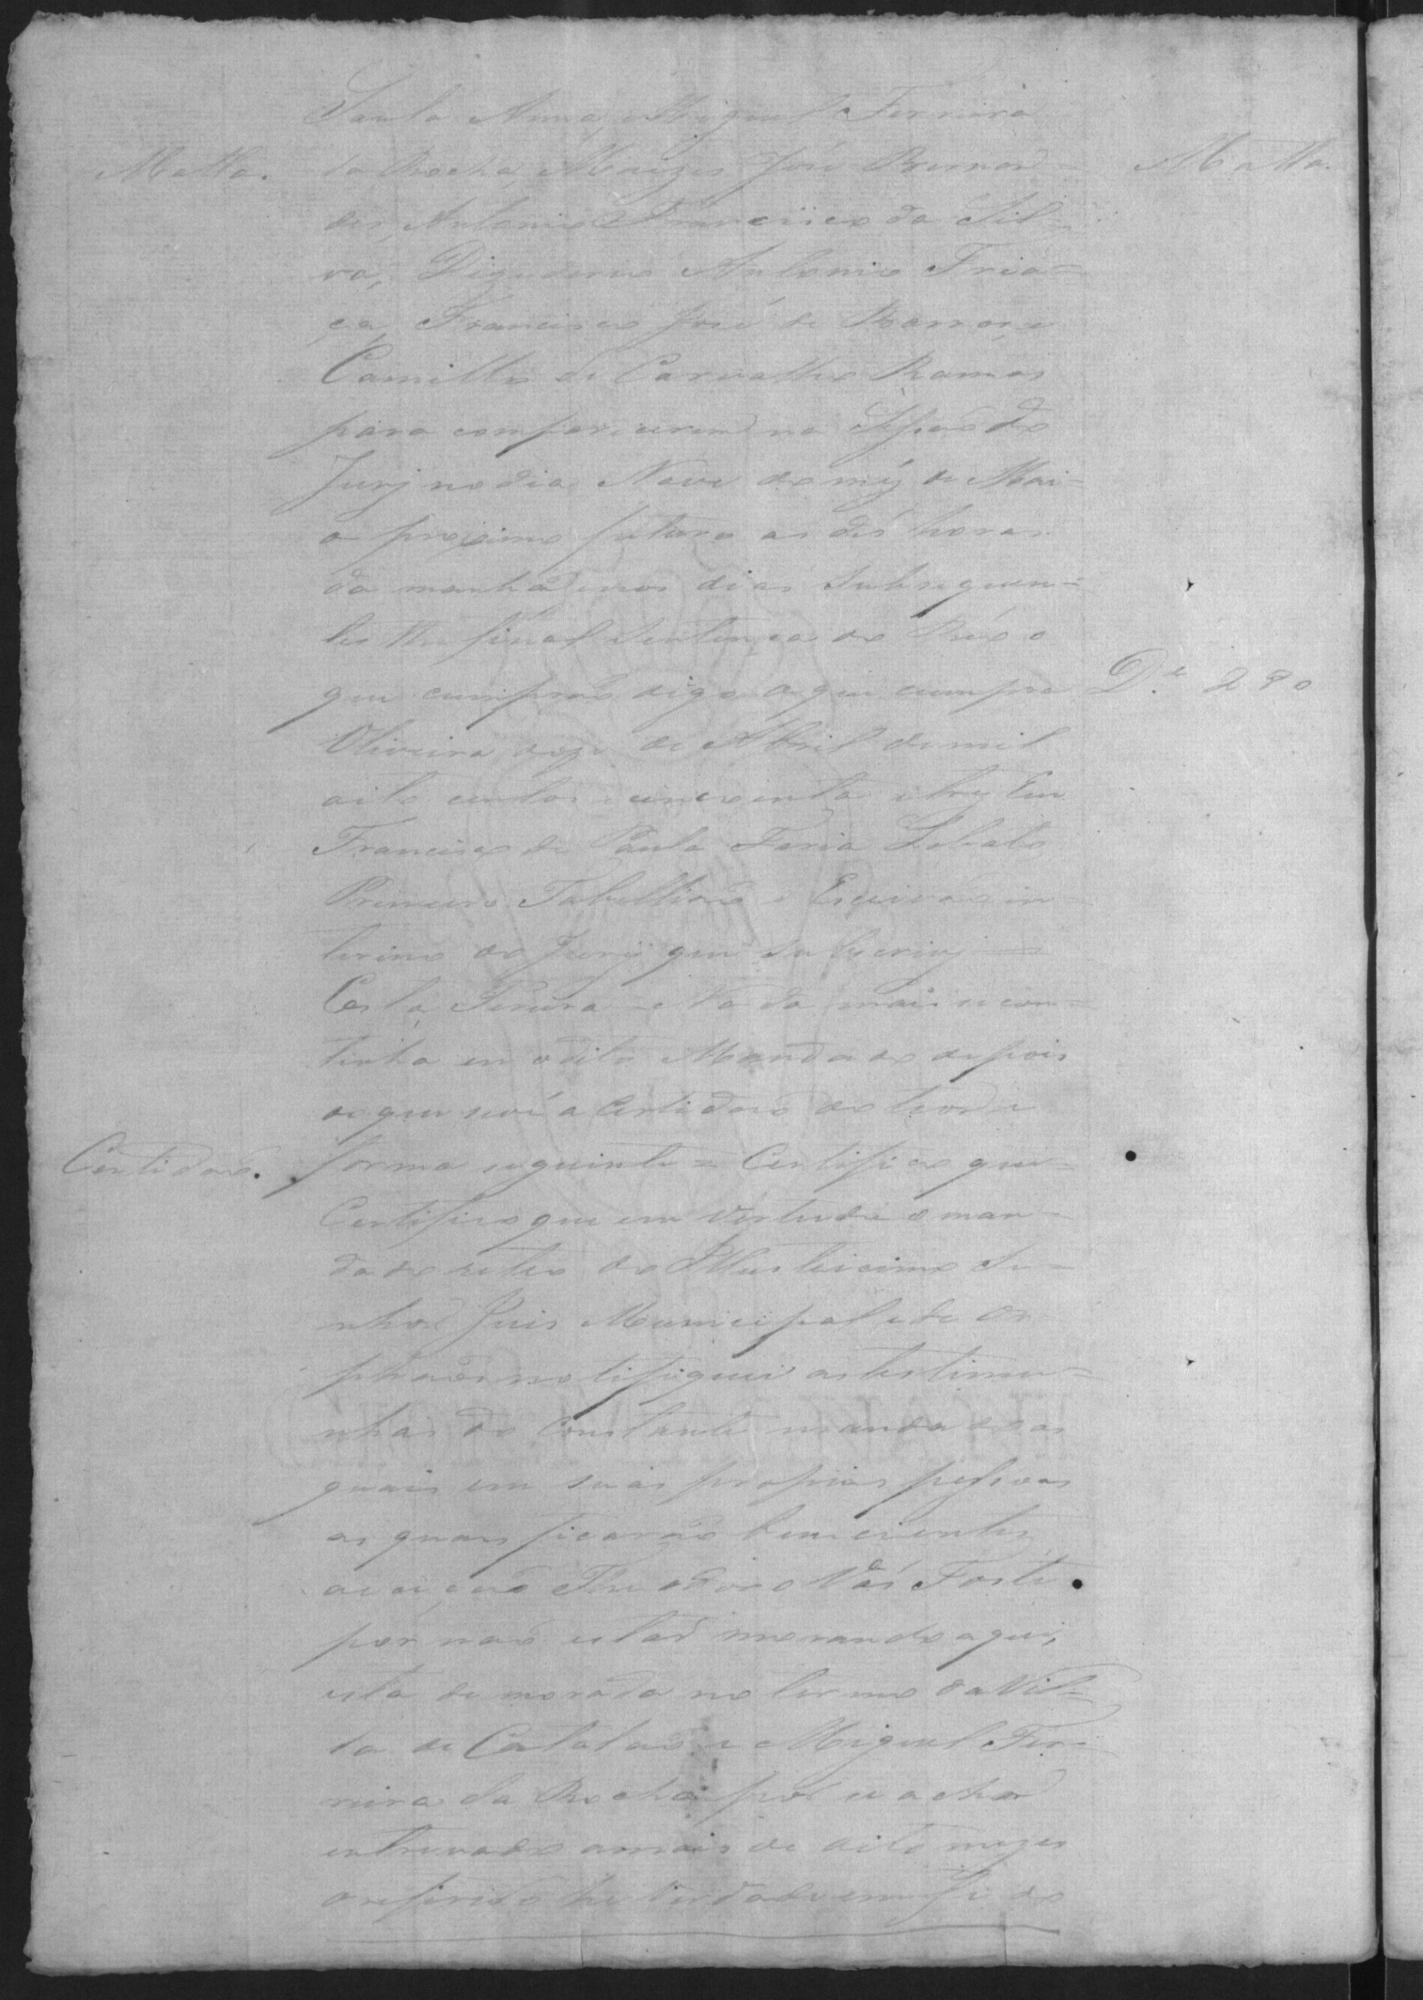 Santa Anna, Miguel Ferreira
Matta. da Rocha, Moizes José Bernar= Matta.
des, Antonio Francisco da Sil=
va, Antonio Fria=
ça, Francisco José de Barros, e
Camillo de Carvalho Ramos
para comparecerem na Sessão do
Jury no dia Nove do mez de Mai=
o proximo futuro as dés horas
da manhã e nos dias subsequen=
tes the final sentença do Réo o
que cumprão digo o que cumpra D.e 280
Oliveira doze de Abril de mil
oito centos e cincoenta e trez Eu
Francisco de Paula Faria Lobato
Primeiro Tabellião e Escrivão in=
terino do Jury que subscrivy =
Costa Pereira = Nada mais se con=
tinha em o dito Mandado depois
do que se vê a Certidão do theor e
Certidão. forma seguinte = Certifico que=
Certifico que em vertude o man=
dado retro do Illustricimo Se=
nhor Juis Municipal e de Or=
phaõs notifiquei as testimu=
nhas do constante mandado as
quais em suas propias pessoas
as quais ficarão bem cientes
a exceção Theodoro Vás Forte
por não estar morando aqui,
esta de morada no termo da Vil=
la de Catalão e Miguel Fer=
reira da Rocha por se achar
entrevado a mais de oito mezes
o referido he verdade em fé do